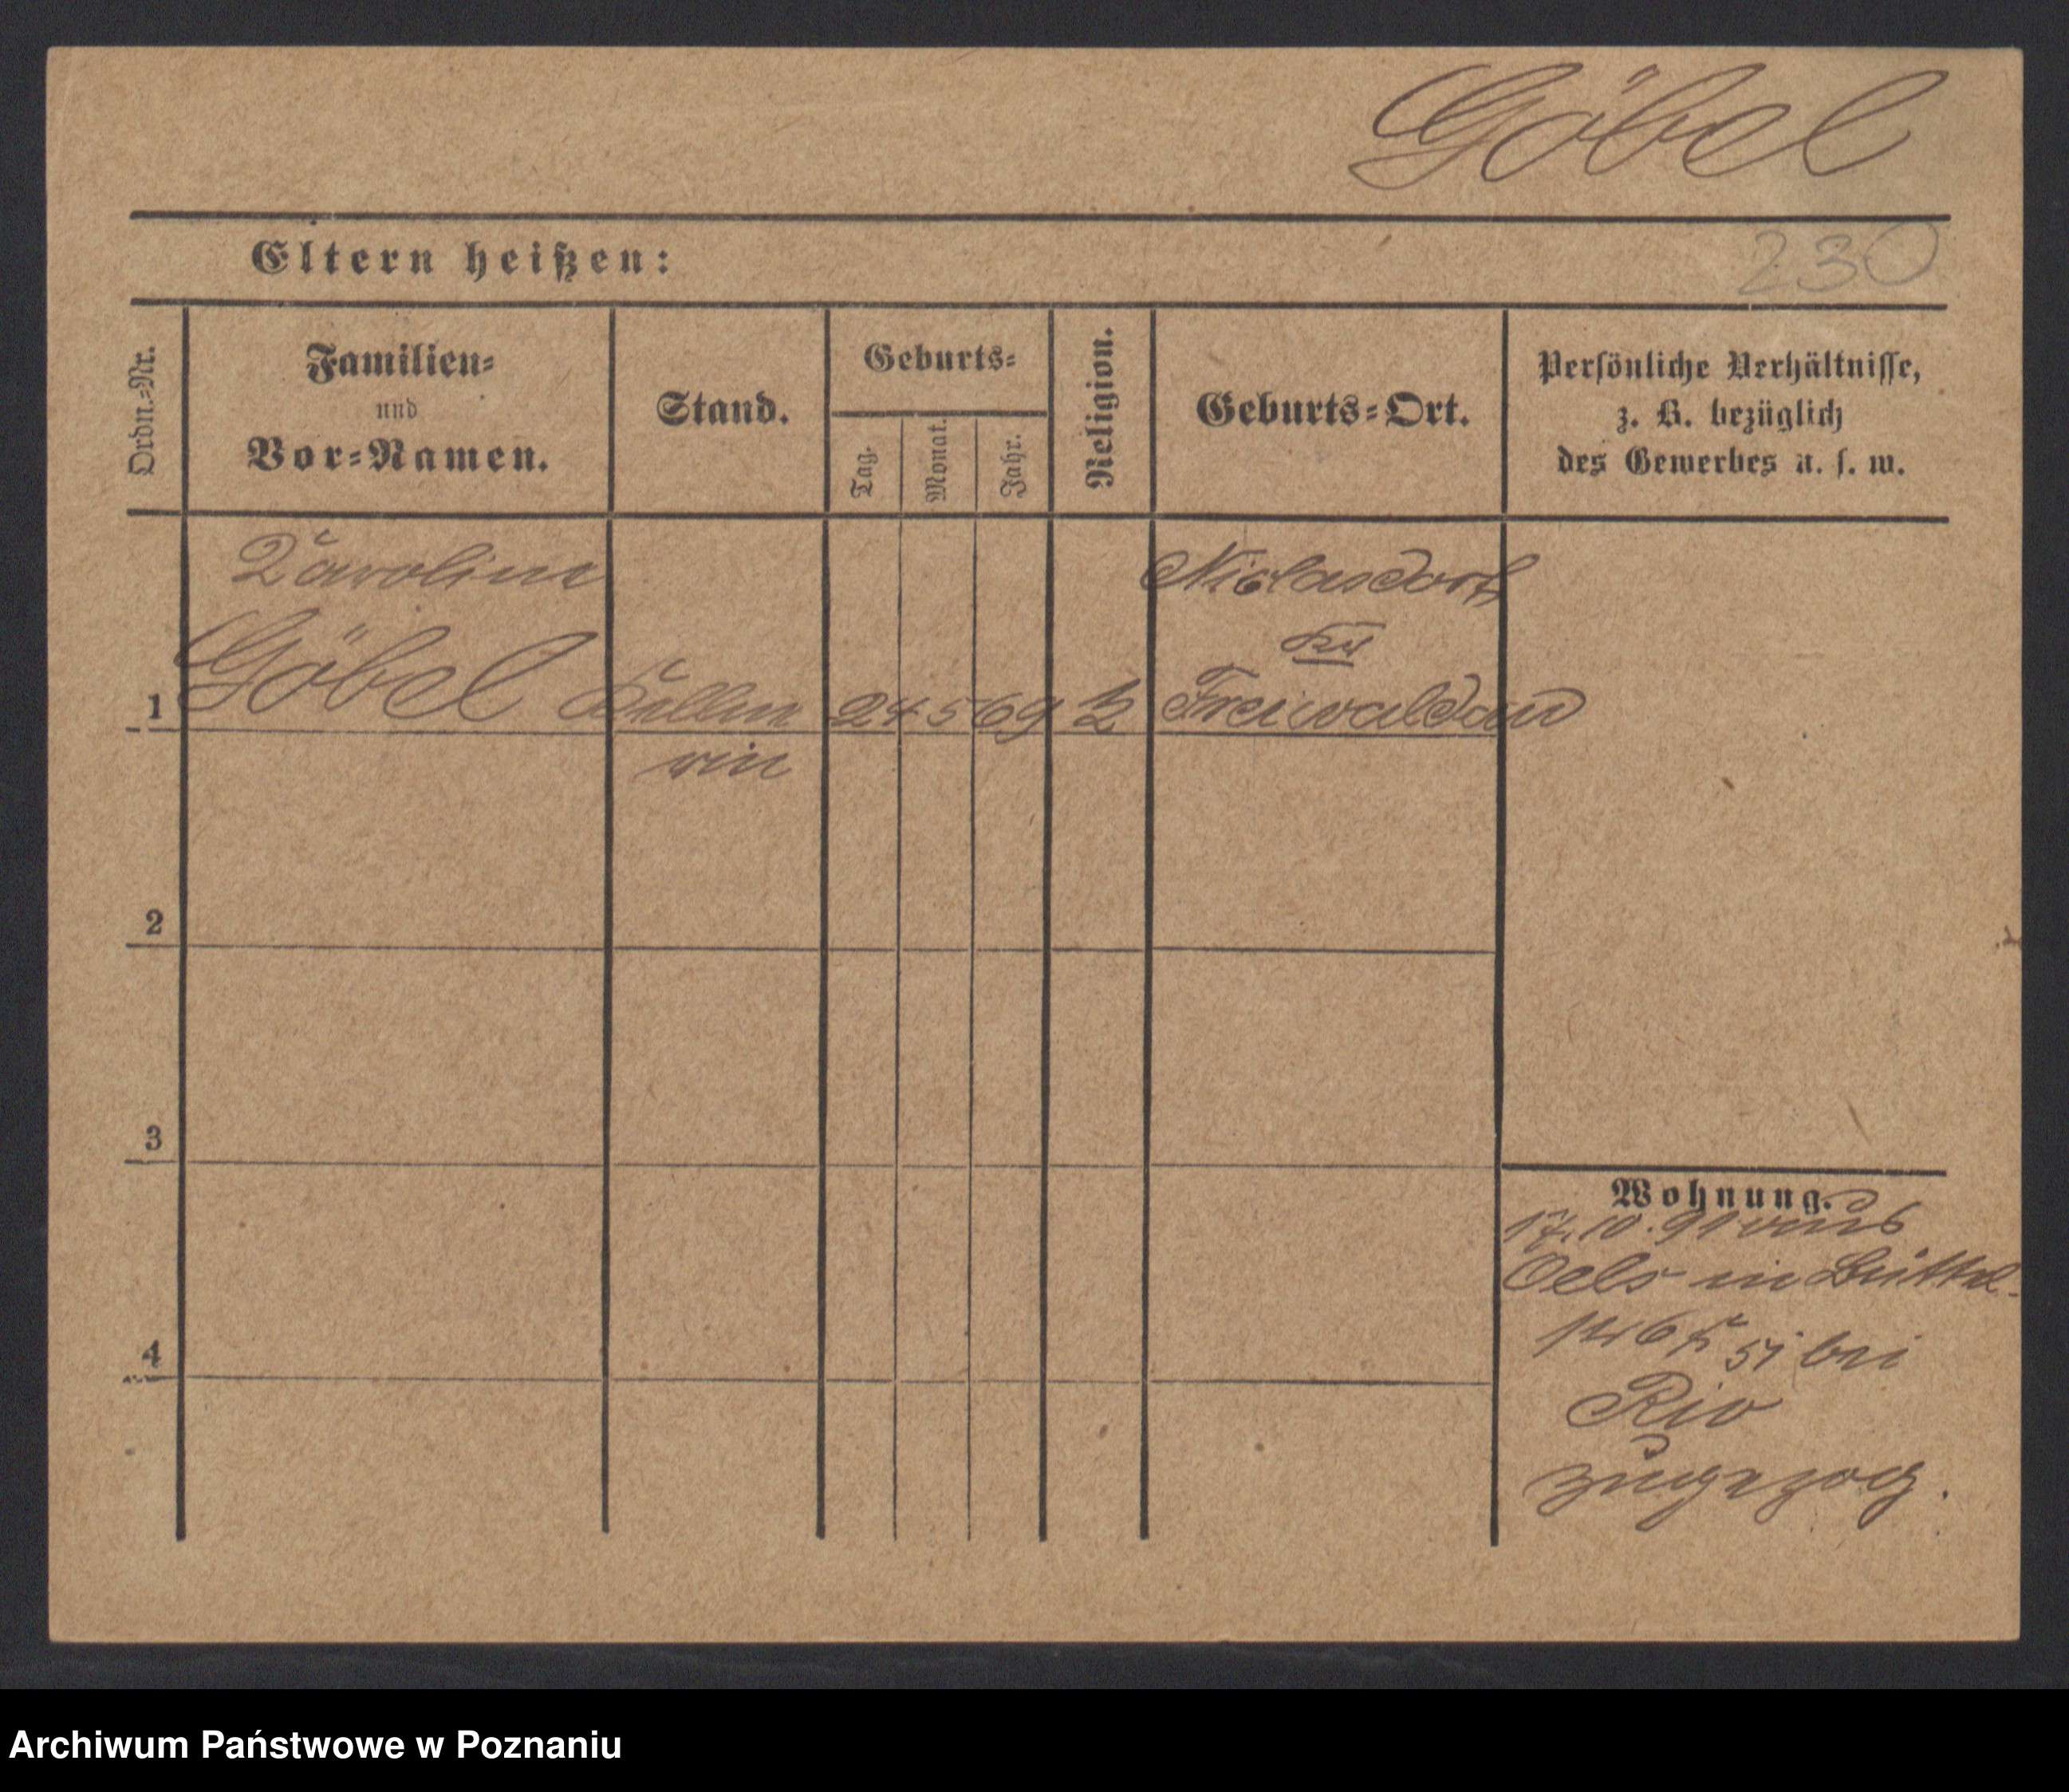 Göbel
Eltern heißen:
230
Ordn.-Nr.
Familien-
und
Vor-Namen.
Stand.
Geburts-
Tag.
Monat.
Jahr.
Religion.
Geburts-Ort.
Persönliche Verhältnisse,
z. B. bezüglich
des Gewerbes u. s. w.
Karoline
Göbel
Kellne
rin
24 5 69
Niclasdorf
Kr
Freiwaldau
1
2
3
4
Wohnung.
17.10.91 aus
Oels in
bei
Rio
zugezog.
Archiwum Państwowe w Poznaniu